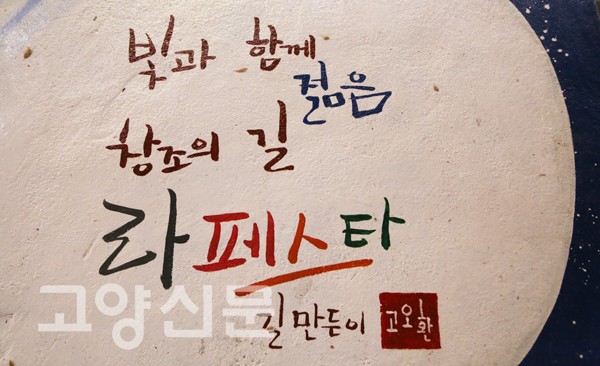 빛과 함께
젊음
창조의 길
라페스타
길만든이 고오환
고양신문